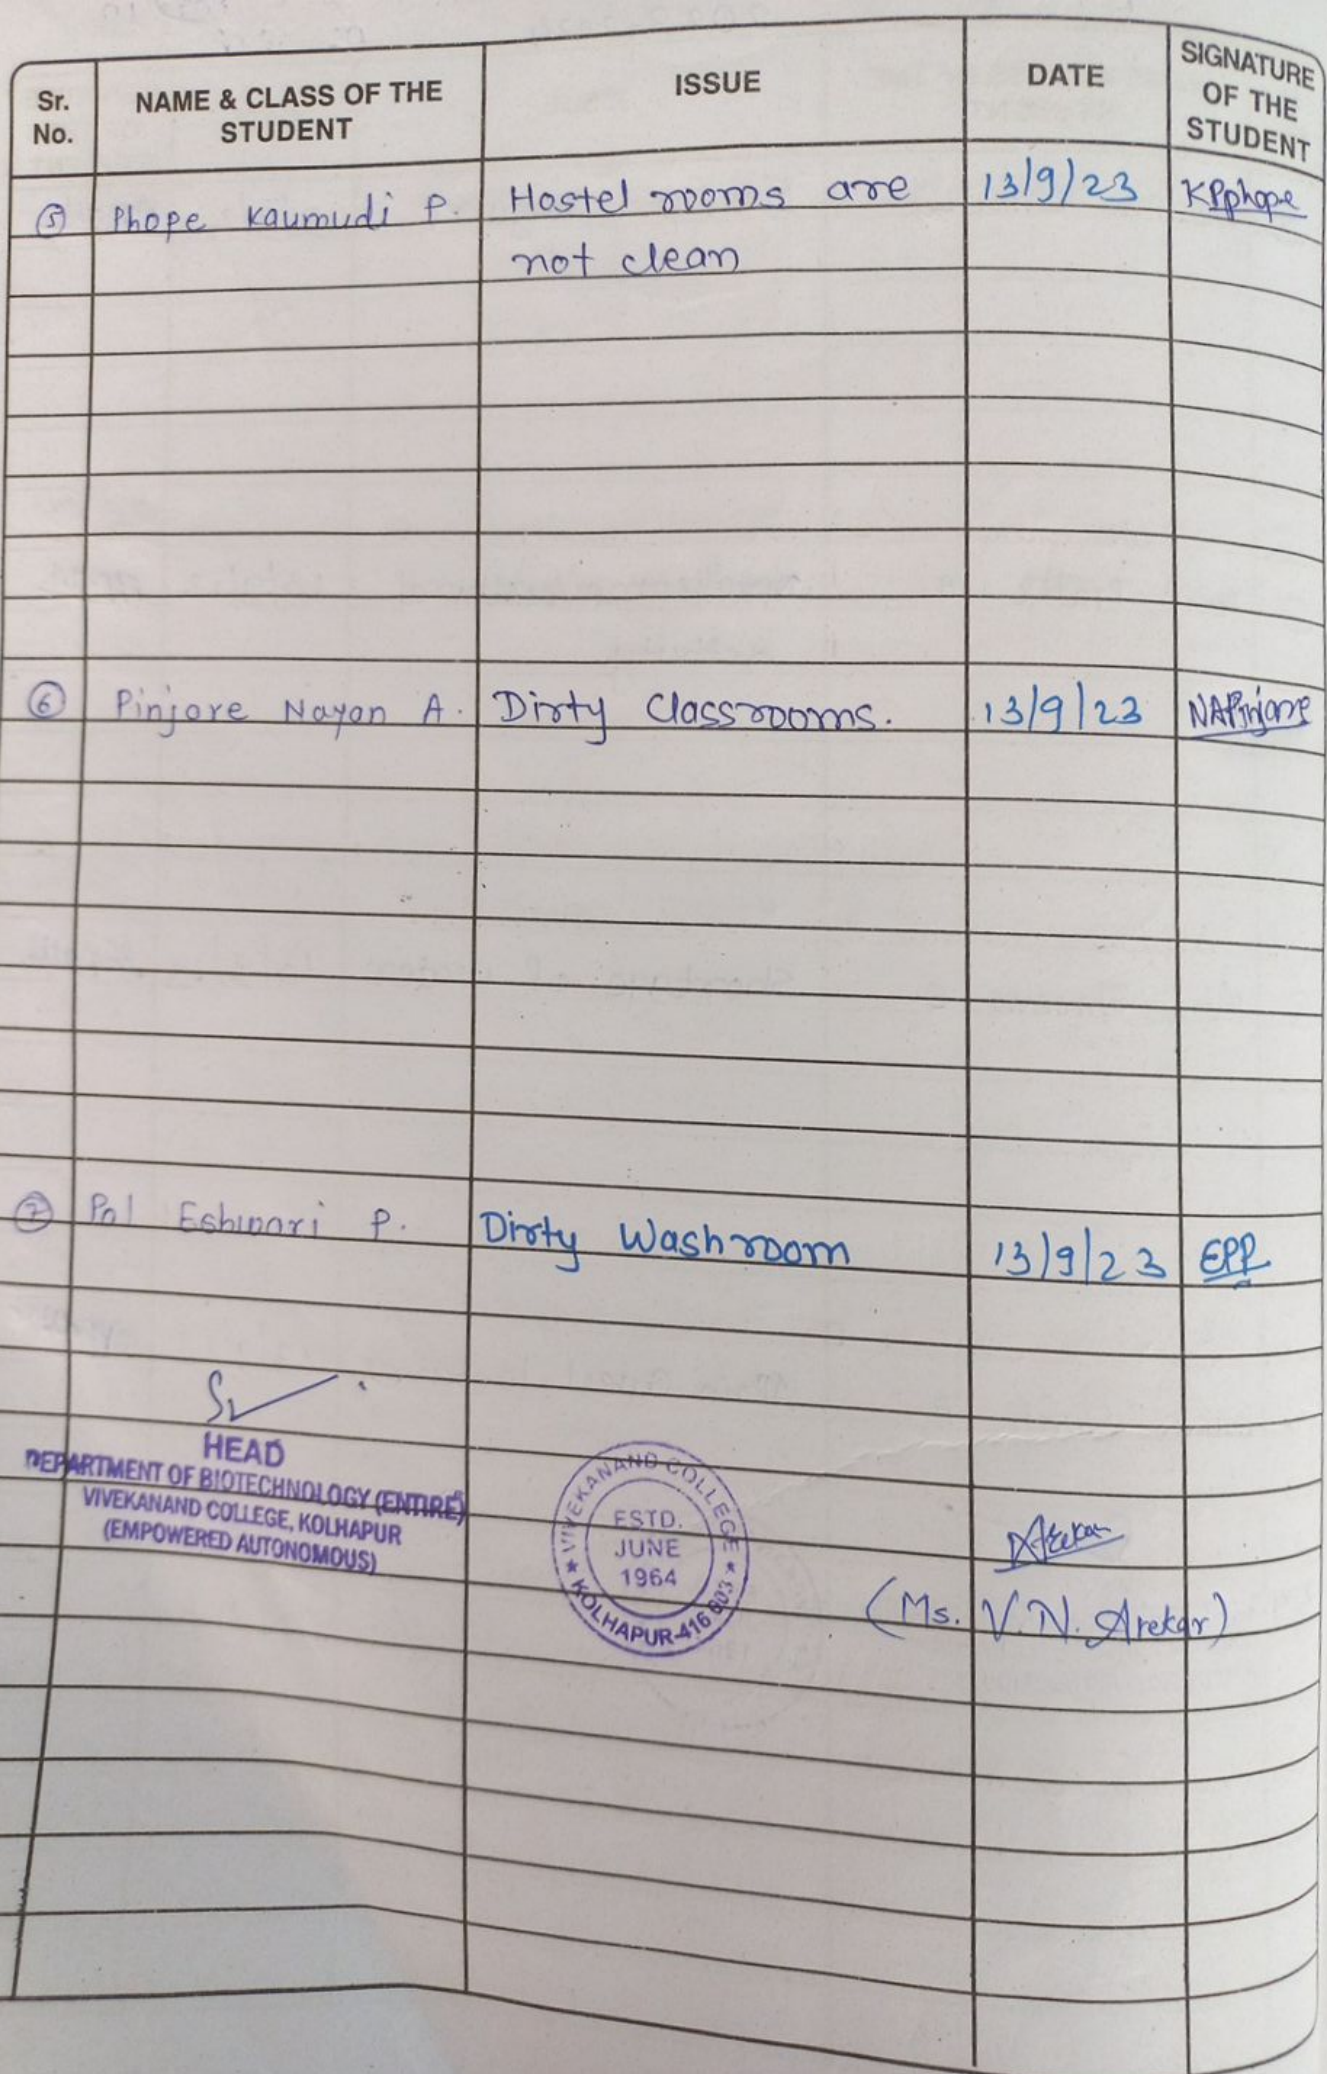 Sr. No.
NAME & CLASS OF THE STUDENT
ISSUE
DATE
SIGNATURE OF THE STUDENT
5 Phope Kaumudi P. Hostel rooms are 13/9/23 KPphope
not clean
6 Pinjore Nayan A. Dirty Classrooms. 13/9/23 NAPinjore
7 Pol Eshwari P. Dirty Washroom 13/9/23 EPP
HEAD
DEPARTMENT OF BIOTECHNOLOGY (ENTIRE)
VIVEKANAND COLLEGE, KOLHAPUR
(EMPOWERED AUTONOMOUS)
VIVEKANAND COLLEGE
ESTD.
JUNE
1964
KOLHAPUR-416 003
Arekar
(Ms. V. N. Arekar)